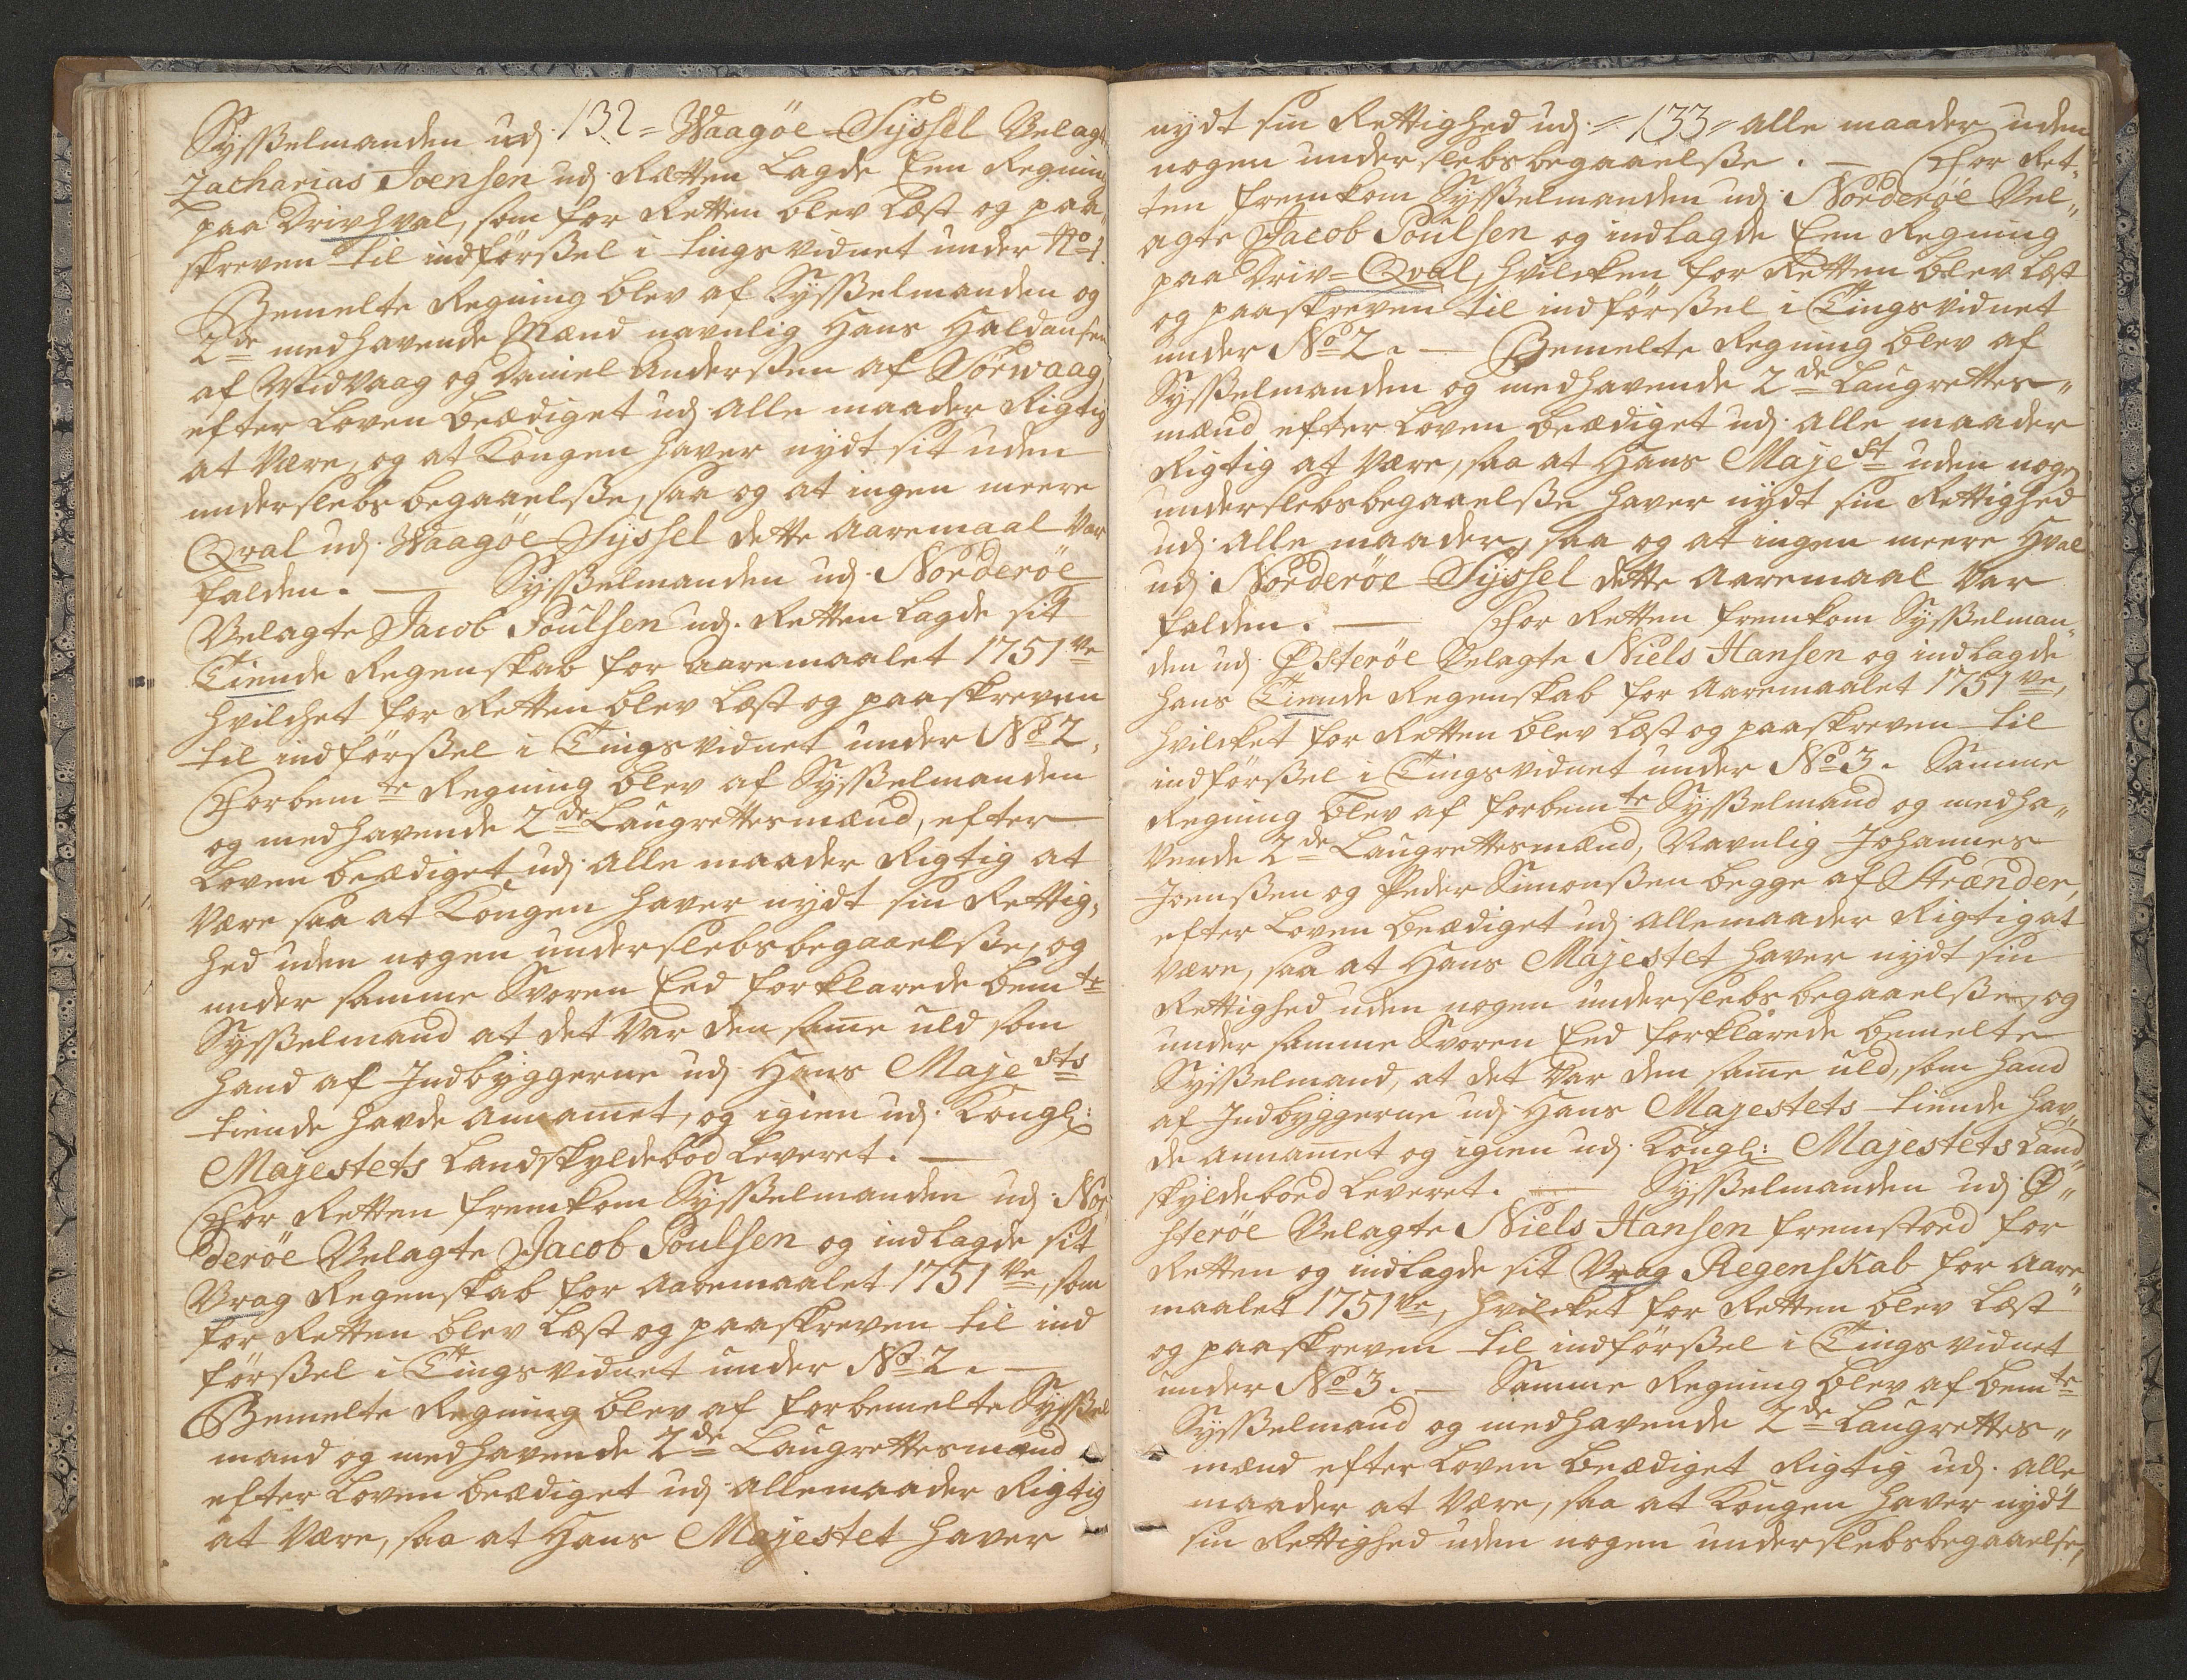 Sysselmanden udj 132 = Waagöe-Syssel Velagt
Zacharias Joensen udj Rætten Lagde Een Regning
paa Drivhval, som for Retten blev Læst og paa
skreven til indförßel i tingsvidnet under No 1.
Bemelte Regning blev af Sysselmanden og
2de medhavende Mænd navnlig Hans Haldansen
af Midvaag og Daniel Andersen af Sörwaag,
efter Loven beædiget udj alle maader Rigtig
at Være, og at Kongen haver nydt sit uden
underslebs begaaelße, saa og at ingen meere
Qval udj Waagöe-Syssel dette Aaremaal Var
falden. — Sysselmanden udj Norderöe
Velagte Jacob Poulsen udj Retten Lagde sit
Tiende Regenskab for Aaremaalet 1751ve
hvilchet for Retten blev Læst og paaskreven
til indförßel i Tingsvidnet under No 2,
Forbemte Regning blev af Sysselmanden
og medhavende 2de Laugrettesmænd, efter
Loven beædiget udj alle maader Rigtig at
Være saa at Kongen haver nydt sin Rettig,
hed uden nogen underslebsbegaaelße, og
under samme Svoren Eed forklarede bemte
Sysselmand at det Var den same uld som
hand af Indbyggerne udj Hans Majests
tiende havde annamet, og igien udj Kongl:
Majestets Landskyldebod Leveret. —
For Retten fremkom Sysselmanden udj Nor
deröe Velagte Jacob Poulsen og indlagde sit
Vrag Regenskab for Aaremaalet 1751ve, som
for Retten blev Læst og paaskreven til ind
förßel i Tingsvidnet under No 2. —
Bemelte Regning blev af forbemelte Syssel
mand og medhavende 2de Laugrettesmænd
efter Loven beædiget udj allemaader Rigtig
at Være, saa at Hans Majestet haver
nydt sin Rettighed udj = 133 = alle maader uden
nogen underslebsbegaaelße. — For Ret,
ten fremkom Sysselmanden udj Norderöe Vel„
agte Jacob Poulsen og indlagde Een Regning
paa Driv=Qval, hvilcken for Retten blev Læst
og paaskreven til indförßel i Tingsvidnet
under No 2. — Bemelte Regning blev af
Sysselmanden og medhavende 2de Laugrettes„
mænd efter Loven beædiget udj alle maader
Rigtig at Være, saa at Hans Majest uden noge
underslebsbegaaelße haver nydt sin Rettighed
udj alle maader, saa og at ingen meere Hval
udj Norderöe-Syssel dette Aaremaal Var
falden. — For Retten fremkom Sysselman„
den udj Österöe Velagte Niels Hansen og indlagde
hans Tiende Regenskab for Aaremaalet 1751ve,
hvilcket for Retten blev Læst og paaskreven til
indförßel i Tingsvidnet under No 3. Samme
Regning blev af forbemte Sysselmand og medha„
vende 2de Laugrettesmænd, Navnlig Johannes
Joensen og Peder Simonsen begge af Strænder,
efter Loven beædiget udj allemaader Rigtig at
være, saa at Hans Majestet haver nydt sin
Rettighed uden nogen underslebs begaaelße, og
under samme Svoren Eed forklarede bemelte
Sysselmand, at det Var den same uld, som hand
af Indbyggerne udj Hans Majestets tiende hav„
de annamet og igien udj Kongl: Majestets Land„
skyldeboed Leveret. — Sysselmanden udj Ö„
steröe Velagte Niels Hansen fremstoed for
Retten og indlagde sit Vrag Regenskab for Aare„
maalet 1751ve, hvilcket for Retten blev Læst
og paaskreven til indförßel i Tingsvidnet
under No 3. — Samme Regning blev af bemte
Sysselmand og medhavende 2de Laugrettes„
mænd efter Loven beædiget Rigtig udj alle
maader at Være, saa at Kongen haver nydt
sin Rettighed uden nogen underslebsbegaaelse,